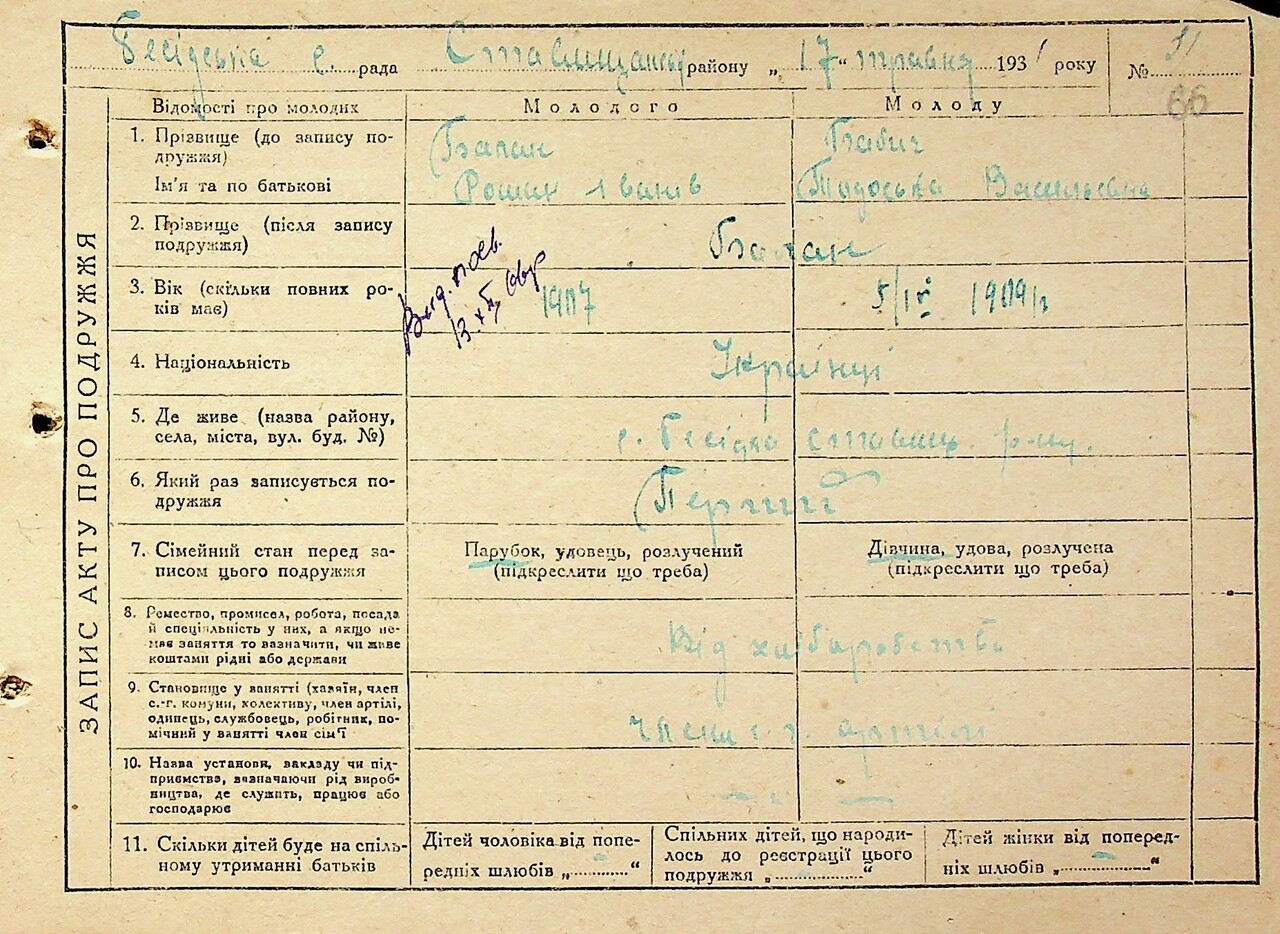 Бесідська с. рада Ставищанськ району „17“ травня 1931 року № 51
66
ЗАПИС АКТУ ПРО ПОДРУЖЖЯ
Відомості про молодих Молодого Молоду
1. Прізвище (до запису по-
дружжя) Балан Бабич
Ім'я та по батькові Роман Іванів Тодоська Васильевна
2. Прізвище (після запису
подружжя) Балан
3. Вік (скільки повних ро-
ків має) 1907 5/IV 1909 р
4. Національність Українці
5. Де живе (назва району,
села, міста, вул. буд. №) с. Бесідка ставищ. р-ну.
6. Який раз записується по-
дружжя Перший
7. Сімейний стан перед за-
писом цього подружжя
Парубок, удовець, розлучений
(підкреслити що треба)
Дівчина, удова, розлучена
(підкреслити що треба)
8. Ремество, промисел, робота, посада
й спеціяльність у них, а якщо не-
має заняття то вазначити, чи живе
коштами рідні або держави
Від хліборобства
9. Становище у занятті (хазяїн, член
с.-г. комуни, колективу, член артілі,
одинець, службовець, робітник, по-
мічний у занятті член сім'ї
Члени с. г. артілі
10. Назва установи, закладу чи під-
приємства, зазначаючи рід вироб-
ництва, де служить, працює або
господарює
11. Скільки дітей буде на спіль-
ному утриманні батьків
Дітей чоловіка від попе-
редніх шлюбів „..........“
Спільних дітей, що народи-
лось до реєстрації цього
подружжя „..........“
Дітей жінки від поперед-
ніх шлюбів „..........“